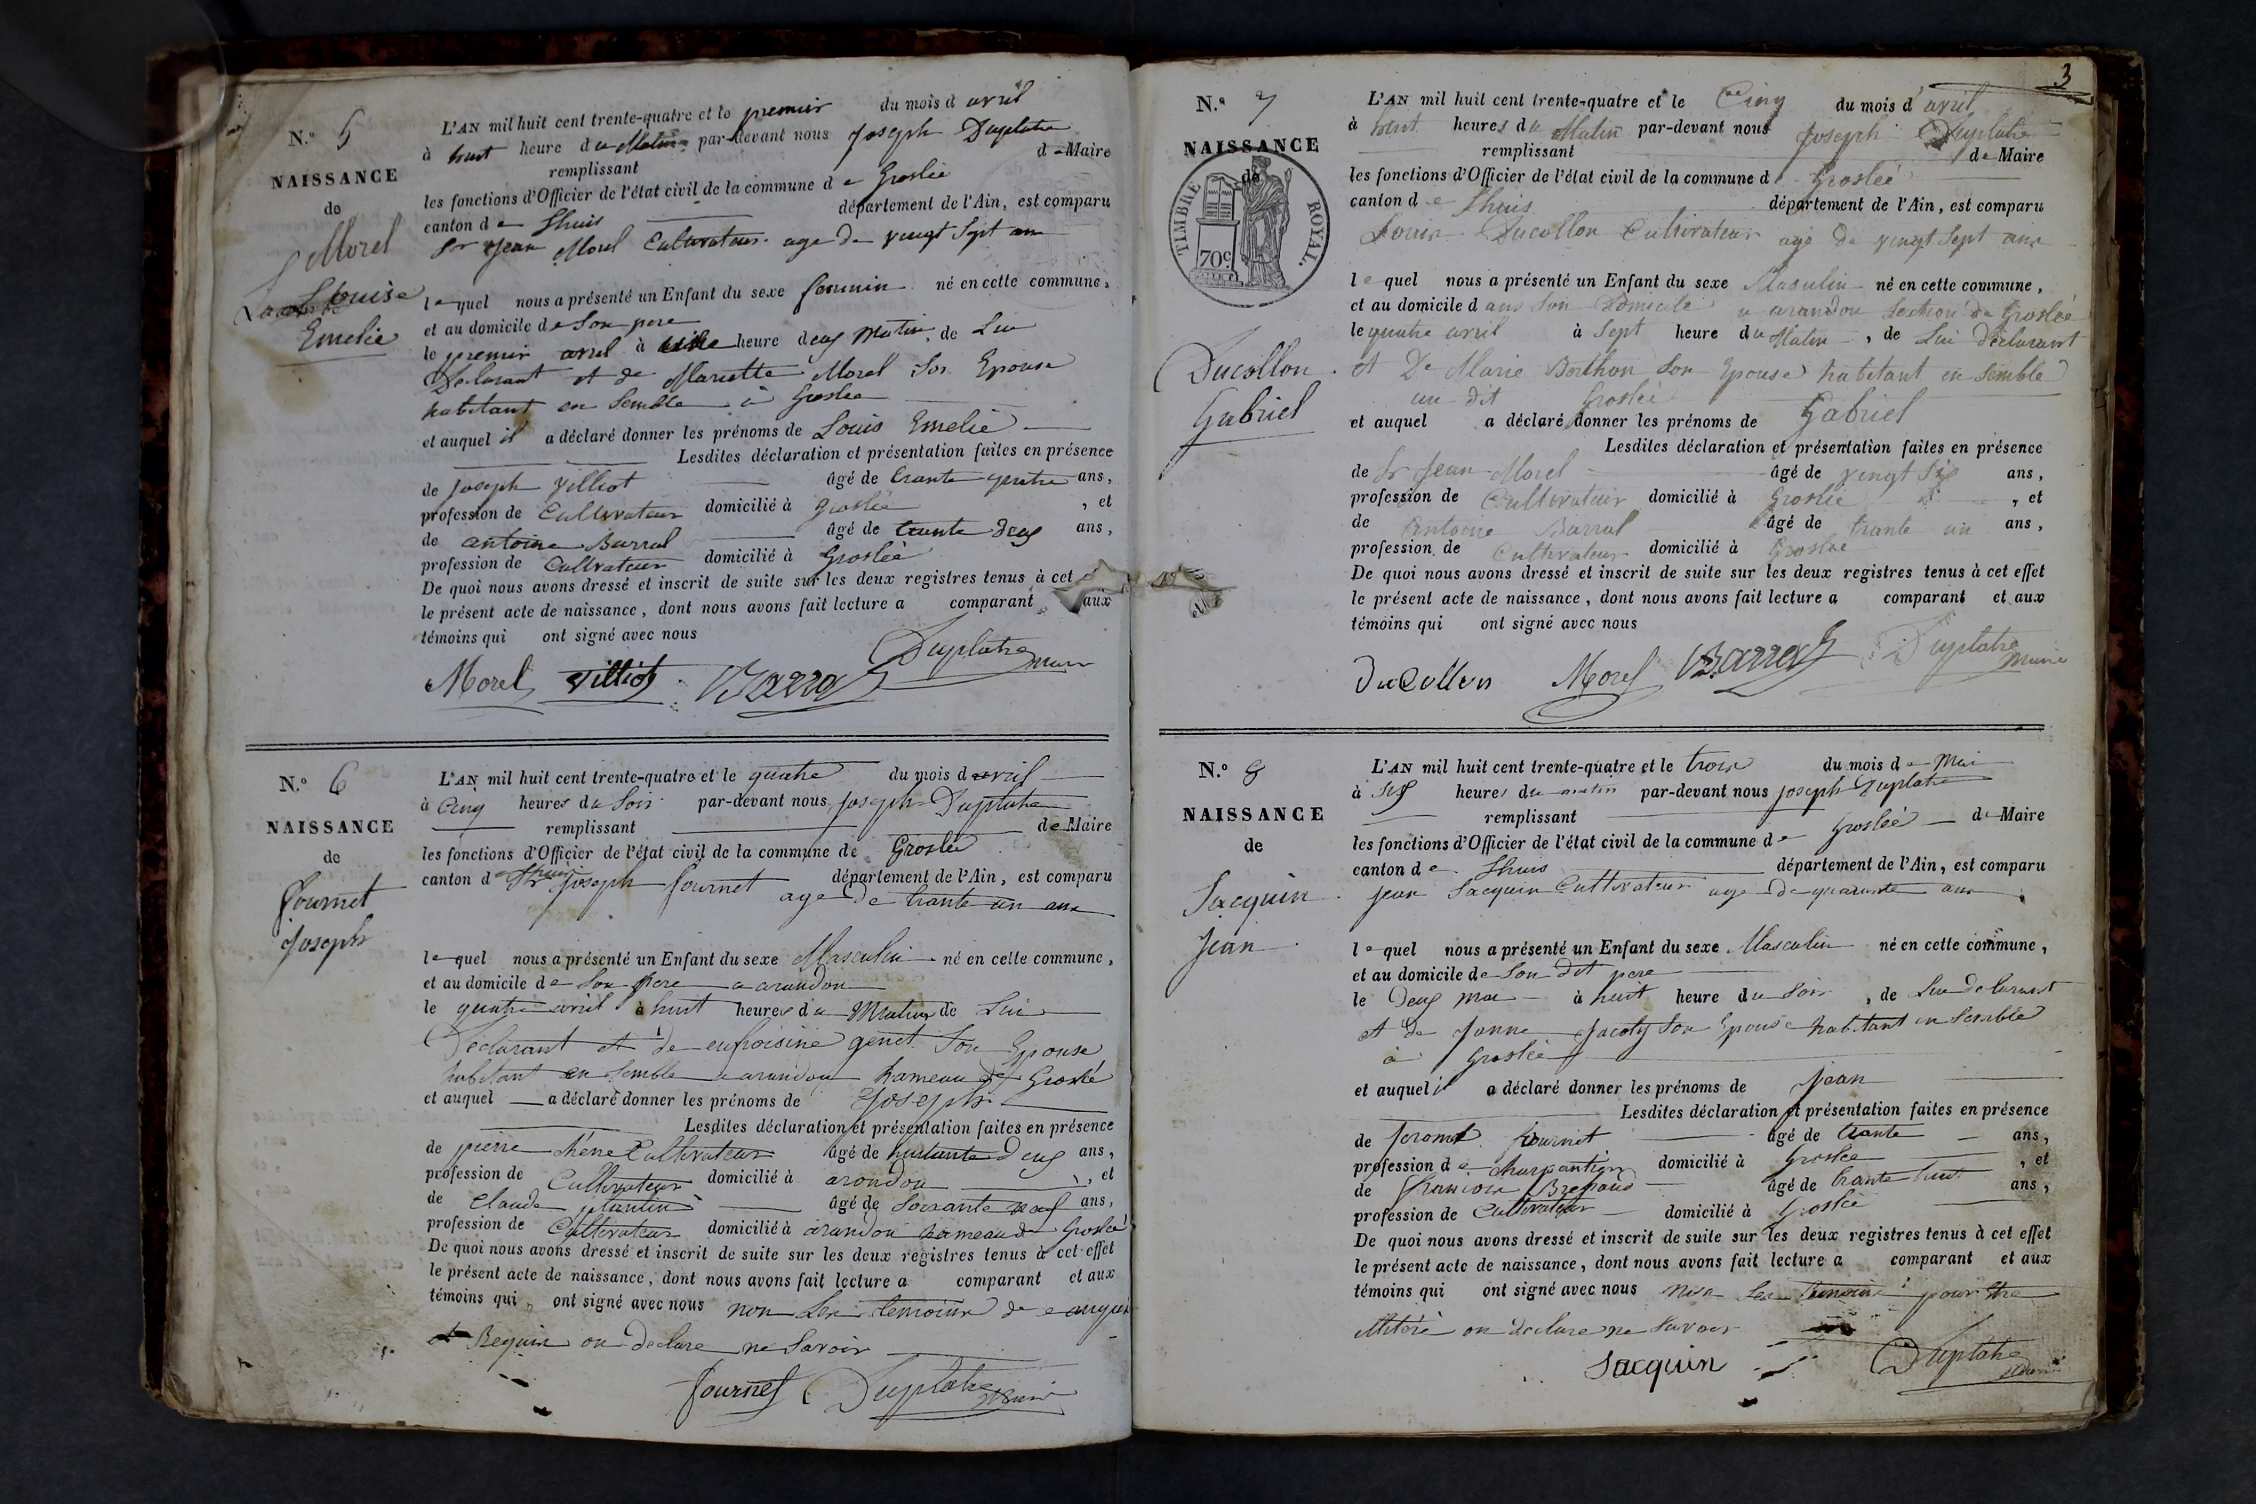 N.º 5
NAISSANCE
de
Morel
Louise
Emelie
L'AN mil huit cent trente-quatre et le premier du mois d avril
à huit heure du Matin par-devant nous Joseph Duplatre
remplissant de Maire
les fonctions d'Officier de l'état civil de la commune de Groslée
canton de Lhuis département de l'Ain, est comparu
Sr Jean Morel Cultivateur age de vingt Sept ans
lequel nous a présenté un Enfant du sexe feminin né en cette commune,
et au domicile de Son pere
le premier avril à heure deux Matin, de Lui
Declarant et de Mariette Morel Son Epouse
habitant en Semble à Groslee
et auquel il a déclaré donner les prénoms de Louis Emelie
Lesdites déclaration et présentation faites en présence
de Joseph Villiot âgé de trante quatre ans,
profession de Cultivateur domicilié à Groslée, et
de antoine Barral âgé de trante deux ans,
profession de Cultivateur domicilié à Groslée
De quoi nous avons dressé et inscrit de suite sur les deux registres tenus à cet
le présent acte de naissance, dont nous avons fait lecture a comparant aux
témoins qui ont signé avec nous
Duplatre maire
Morel Villiot Barral
N.º 6
NAISSANCE
de
fournet
Joseph
L'AN mil huit cent trente-quatre et le quatre du mois d avril
à Cinq heures du Soir par-devant nous Joseph Duplatre
remplissant de Maire
les fonctions d'Officier de l'état civil de la commune de Groslée
canton de Lhuis département de l'Ain, est comparu
Sr Joseph fournet age de trante un ans
lequel nous a présenté un Enfant du sexe Masculin né en cette commune,
et au domicile de Son Pere a arandon
le quatre avril à huit heures du Matin de Lui
Declarant et de eufroisine genet Son Epouse
habitant en Semble a arandon hameau de Groslé
et auquel a déclaré donner les prénoms de Joseph
Lesdites déclaration et présentation faites en présence
de pierre Cultivateur âgé de deux ans,
profession de Cultivateur domicilié à arondon, et
de Claude plantin âgé de Soixante neuf ans,
profession de Cultivateur domicilié à arandon hameau de Groslée
De quoi nous avons dressé et inscrit de suite sur les deux registres tenus à cet effet
le présent acte de naissance, dont nous avons fait lecture a comparant et aux
témoins qui ont signé avec nous non Les temoins de ce enquis
et Requis on declare ne Savoir
fournet Duplatre Maire
3
N.º 7
NAISSANCE
de
TIMBRE ROYAL.
70c
Ducollon
Gabriel
L'AN mil huit cent trente-quatre et le Cinq du mois d'avril
à huit heures du Matin par-devant nous Joseph Duplatre
remplissant de Maire
les fonctions d'Officier de l'état civil de la commune de Groslée
canton de Lhuis département de l'Ain, est comparu
Louis Ducollon Cultivateur age de vingt Sept ans
lequel nous a présenté un Enfant du sexe Masculin né en cette commune,
et au domicile dans Son Domicile a arandon Section de Groslée
le quatre avril à Sept heure du Matin, de Lui Déclarant
et De Marie Berthon Son Epouse habitant en Semble
au dit Groslée
et auquel a déclaré donner les prénoms de Gabriel
Lesdites déclaration et présentation faites en présence
de Sr Jean Morel âgé de vingt Six ans,
profession de Cultivateur domicilié à Groslée, et
de Antoine Barral âgé de trante un ans,
profession de Cultivateur domicilié à Groslée
De quoi nous avons dressé et inscrit de suite sur les deux registres tenus à cet effet
le présent acte de naissance, dont nous avons fait lecture a comparant et aux
témoins qui ont signé avec nous
DuCollon Morel Barral Duplatre Maire
N.º 8
NAISSANCE
de
Sacquin
Jean
L'AN mil huit cent trente-quatre et le trois du mois de Mai
à Six heures du matin par-devant nous Joseph Duplatre
remplissant de Maire
les fonctions d'Officier de l'état civil de la commune de Groslée
canton de Lhuis département de l'Ain, est comparu
Jean Sacquin Cultivateur age de quarante ans
lequel nous a présenté un Enfant du sexe Masculin né en cette commune,
et au domicile de Son dit pere
le Deux Mai à huit heure du Soir, de Lui Declarant
et de Janne Jacoty Son Epouse habitant en Semble
à Groslée
et auquel il a déclaré donner les prénoms de Jean
Lesdites déclaration et présentation faites en présence
de Jerome fournet âgé de trante ans,
profession de charpantier domicilié à Groslée, et
de francois âgé de trante huit ans,
profession de Cultivateur domicilié à Groslée
De quoi nous avons dressé et inscrit de suite sur les deux registres tenus à cet effet
le présent acte de naissance, dont nous avons fait lecture a comparant et aux
témoins qui ont signé avec nous non Les temoins pour etre
illitéré on declare ne Savoir
Sacquin Duplatre Maire